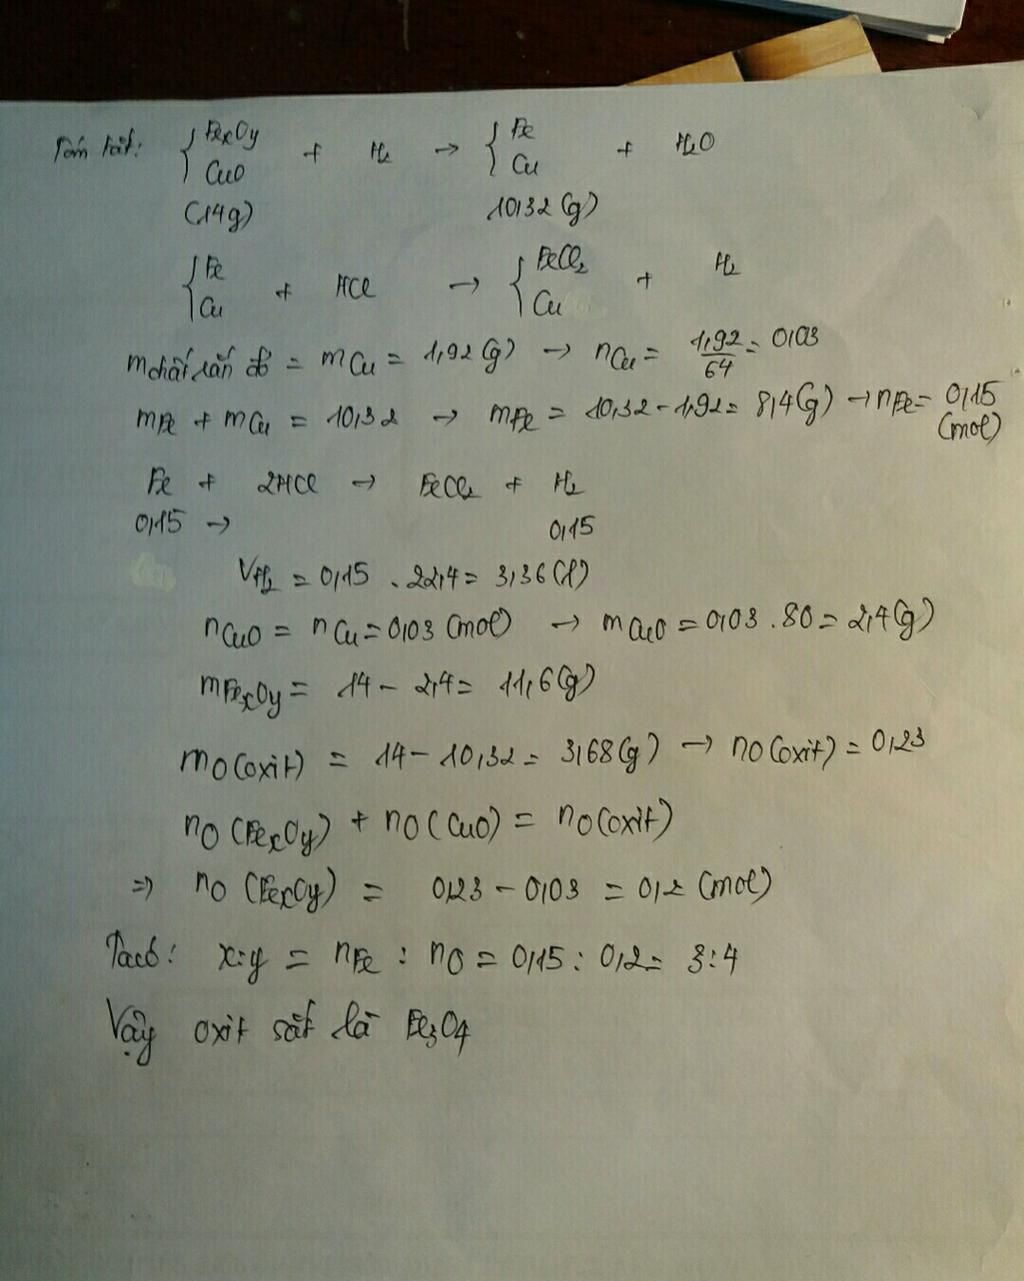 Tóm tắt: { FexOy + H2 → { Fe + H2O
CuO Cu
(14g) 10,32 (g)
{ Fe + HCl → { FeCl2 + H2
Cu Cu
m chất rắn đỏ = mCu = 1,92 (g) → nCu = 1,92/64 = 0,03
mFe + mCu = 10,32 → mFe = 10,32 - 1,92 = 8,4 (g) → nFe = 0,15 (mol)
Fe + 2HCl → FeCl2 + H2
0,15 → 0,15
VH2 = 0,15 . 22,4 = 3,36 (l)
nCuO = nCu = 0,03 (mol) → mCuO = 0,03 . 80 = 2,4 (g)
mFexOy = 14 - 2,4 = 11,6 (g)
mO (oxit) = 14 - 10,32 = 3,68 (g) → nO (oxit) = 0,23
nO (FexOy) + nO (CuO) = nO (oxit)
=> nO (FexOy) = 0,23 - 0,03 = 0,2 (mol)
Ta có: x:y = nFe : nO = 0,15 : 0,2 = 3:4
Vậy oxit sắt là Fe3O4